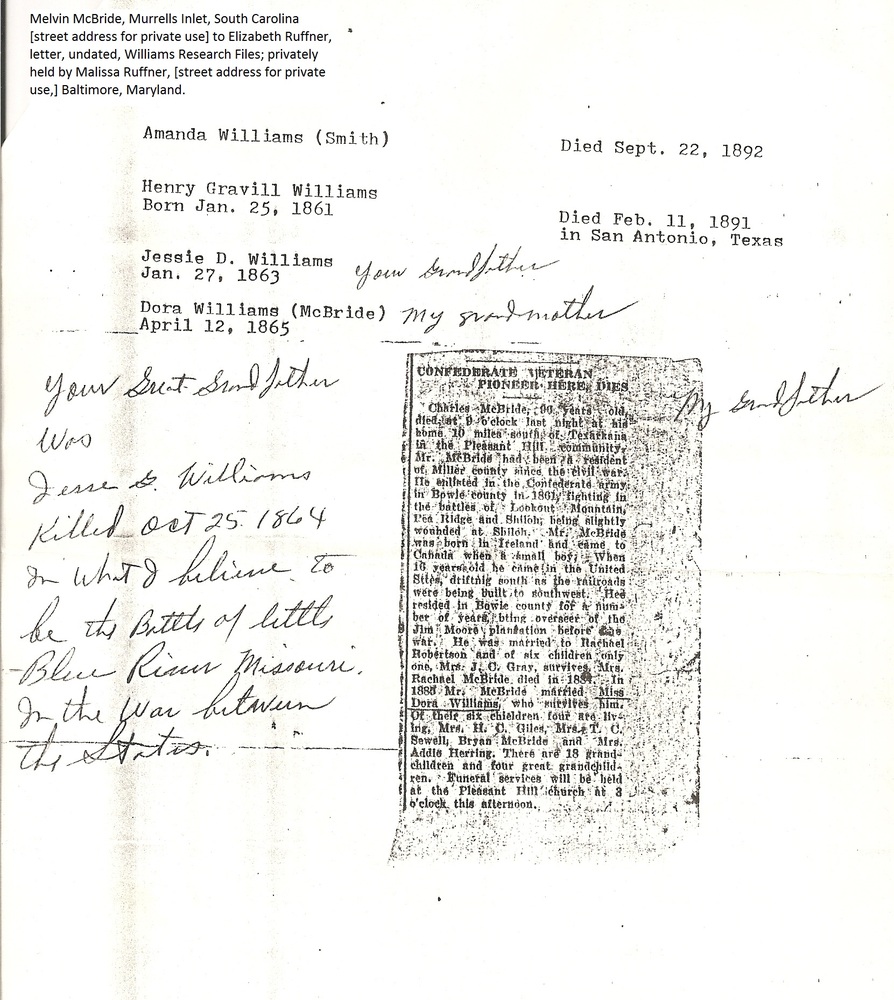 Melvin McBride, Murrells Inlet, South Carolina
[street address for private use] to Elizabeth Ruffner,
letter, undated, Williams Research Files; privately
held by Malissa Ruffner, [street address for private
use,] Baltimore, Maryland.
Amanda Williams (Smith)
Died Sept. 22, 1892
Henry Gravill Williams
Born Jan. 25, 1861
Died Feb. 11, 1891
in San Antonio, Texas
Jessie D. Williams
Jan. 27, 1863
your Grandfather
Dora Williams (McBride)
April 12, 1865
My grandmother
Your Great Grandfather
Was
Jesse G. Williams
Killed Oct 25 1864
In What I believe to
be the Battle of little
Blue River Missouri.
In the War between
the States.
CONFEDERATE VETERAN
PIONEER HERE, DIES
My Grandfather
Charles McBride, 90 years old,
died at 9 o'clock last night at his
home 10 miles south of Texarkana
in the Pleasant Hill community.
Mr. McBride had been a resident
of Miller county since the civil war.
He enlisted in the Confederate army
in Bowie county in 1861, fighting in
the battles of Lookout Mountain,
Pea Ridge and Shiloh, being slightly
wounded at Shiloh. Mr. McBride
was born in Ireland and came to
Canada when a small boy. When
16 years old he came in the United
Sttes, driftnig south as the railroads
were being built to southwest. Hed
resided in Bowie county for a num-
ber of years, bting overseer of the
Jim Moore plantation before the
war. He was married to Rachael
Robertson and of six children only
one, Mrs. J. C. Gray, survives. Mrs.
Rachael McBride died in In
1888 Mr. McBride married Miss
Dora Williams, who survives him.
Of their six chieldren four are liv-
ing, Mrs. H. C. Giles, Mrs. T. C.
Sewell, Bryan McBride and Mrs.
Addie Herring. There are 18 grand-
children and four great grandchild-
ren. Funeral services will be held
at the Pleasant Hill church at 3
o'clock this afternoon.